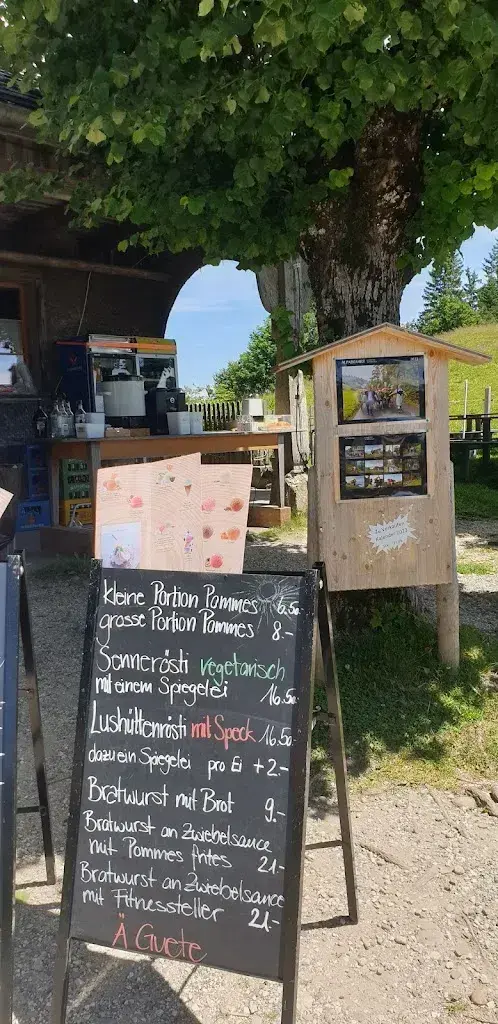 kleine Portion Pommes 6.50
grosse Portion Pommes 8.-
Sennerösti vegetarisch
mit einem Spiegelei 16.50
Lushüttenrösti mit Speck 16.50
dazu ein Spiegelei pro Ei + 2.-
Bratwurst mit Brot 9.-
Bratwurst an Zwiebelsauce
mit Pommes frites 21.-
Bratwurst an Zwiebelsauce
mit Fitnessteller 21.-
Ä Guete